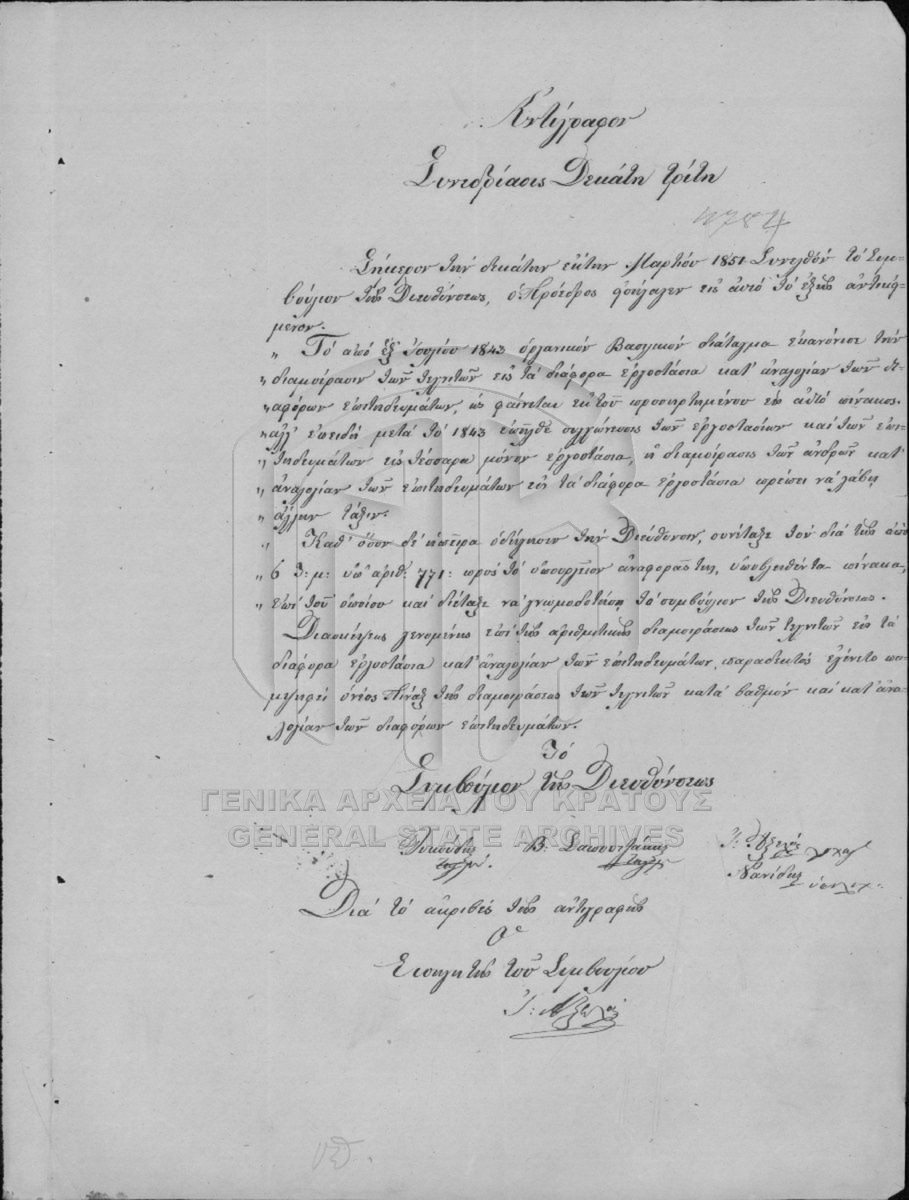 Ἀντίγραφον
Συνεδρίασις Δεκάτη τρίτη
4784
Σήμερον τὴν δεκάτην ἕκτην Μαρτίου 1851 Συνελθὸν τὸ Συμ-
βούλιον τῆς Διευθύνσεως, ὁ Πρόεδρος εἰς αὐτὸ τὸ ἑξῆς ἀντικεί-
μενον.
„ Τὸ ἀπὸ ἓξ Ἰουλίου 1843 ὀργανικὸν Βασιλικὸν διάταγμα ἐκανόνισε τὴν
„ διαμοίρασιν τῶν τεχνιτῶν εἰς τὰ διάφορα ἐργοστάσια κατ' ἀναλογίαν τῶν δι-
„ αφόρων ἐπιτηδευμάτων, ὡς φαίνεται ἐκ τοῦ προσηρτημένου εἰς αὐτὸ πίνακος.
„ ἀλλ' ἐπειδὴ μετὰ τὸ 1843 ἐπῆλθε συγχώνευσις τῶν ἐργοστασίων καὶ τῶν ἐπι-
„ τηδευμάτων εἰς τέσσαρα μόνον ἐργοστάσια, ἡ διαμοίρασις τῶν ἀνδρῶν κατ'
„ ἀναλογίαν τῶν ἐπιτηδευμάτων εἰς τὰ διάφορα ἐργοστάσια πρέπει νὰ λάβῃ
„ ἄλλην τάξιν.
„ Καθ' ὅσον δὲ ἡ πεῖρα ὁδήγησεν τὴν Διεύθυνσιν, συνέταξε τὸν διὰ τῆς ἀπὸ
„ 6 Ἰ: μ: ὑπ' ἀριθ. 771: πρὸς τὸ ὑπουργεῖον ἀναφορᾶς της, ὑποβληθέντα πίνακα,
„ ἐπὶ τοῦ ὁποίου καὶ διέταξε νὰ γνωμοδοτήσῃ τὸ συμβούλιον τῆς Διευθύνσεως.
Διασκέψεως γενομένης ἐπὶ τῆς ἀριθμητικῆς διαμοιράσεως τῶν τεχνιτῶν εἰς τὰ
διάφορα ἐργοστάσια κατ' ἀναλογίαν τῶν ἐπιτηδευμάτων, παραδεκτὸς ἐγένετο πα-
μψηφεὶ ὁ νέος Πίναξ τῆς διαμοιράσεως τῶν τεχνιτῶν κατὰ βαθμὸν καὶ κατ' ἀνα-
λογίαν τῶν διαφόρων ἐπιτηδευμάτων.
Τὸ
Συμβούλιον τῆς Διευθύνσεως
ΓΕΝΙΚΑ ΑΡΧΕΙΑ ΤΟΥ ΚΡΑΤΟΥΣ
GENERAL STATE ARCHIVES
Β. Σαπουντζάκης
Διὰ τὸ ἀκριβὲς τῆς ἀντιγραφῆς
Ὁ
Εἰσηγητὴς τοῦ Συμβουλίου